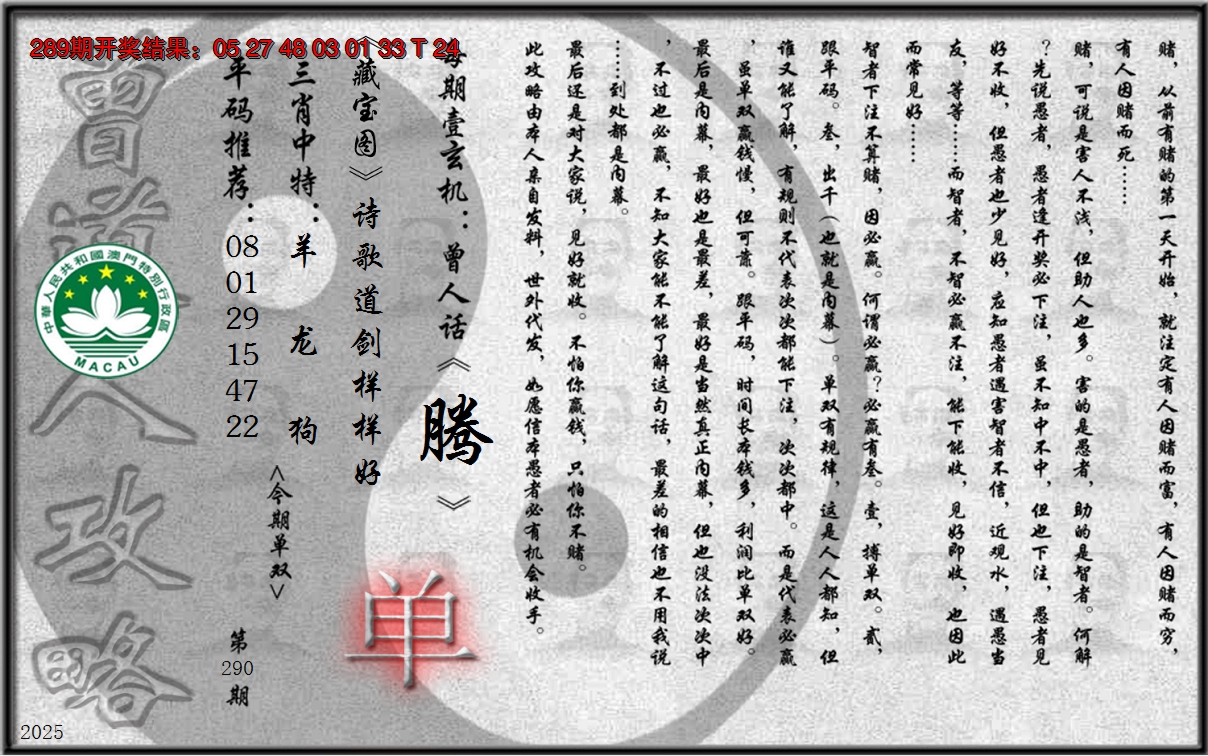 289期开奖结果：05 27 48 03 01 33 T 24
赌，从前有赌的第一天开始，就注定有人因赌而富，有人因赌而穷，
有人因赌而死……
赌，可说是害人不浅，但助人也多。害的是愚者，助的是智者。何解
？先说愚者，愚者逢开奖必下注，虽不知中不中，但也下注，愚者见
好不收，但愚者也少见好，应知愚者遇害智者不信，近观水，遇愚当
友，等等……而智者，不智必赢不注，能下能收，见好即收，也因此
而常见好……
智者下注不算赌，因必赢。何谓必赢？必赢有叁。壹，搏单双。贰，
跟平码。叁，出千（也就是内幕）。单双有规律，这是人人都知，但
谁又能了解，有规则不代表次次都能下注，次次都中。而是代表必赢
，虽单双赢钱慢，但可靠。跟平码，时间长本钱多，利润比单双好。
最后是内幕，最好也是最差，最好是当然真正内幕，但也没法次次中
，不过也必赢，不知大家能不能了解这句话，最差的相信也不用我说
……到处都是内幕。
最后还是对大家说，见好就收。不怕你赢钱，只怕你不赌。
此攻略由本人亲自发料，世外代发，如愿信本愚者必有机会收手。
每期壹玄机：曾人话《腾》
《藏宝图》诗歌道剑样样好
单
三肖中特：羊 龙 狗
<今期单双>
平码推荐：08 01 29 15 47 22
第290期
曾道人攻略
中華人民共和國澳門特別行政區
MACAU
2025